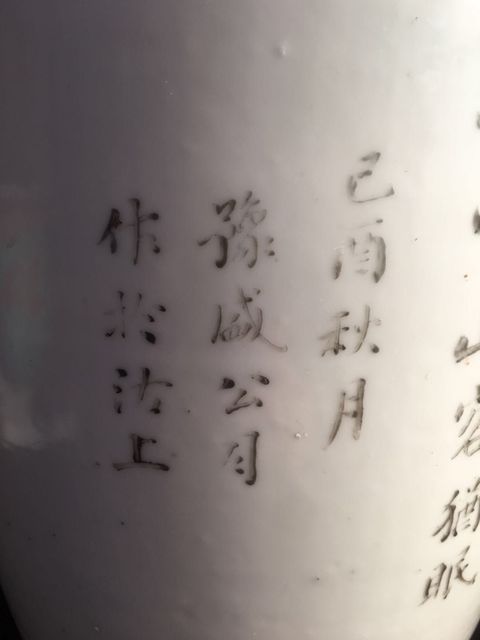 山客猶眠
己酉秋月
豫盛公司
作於沽上